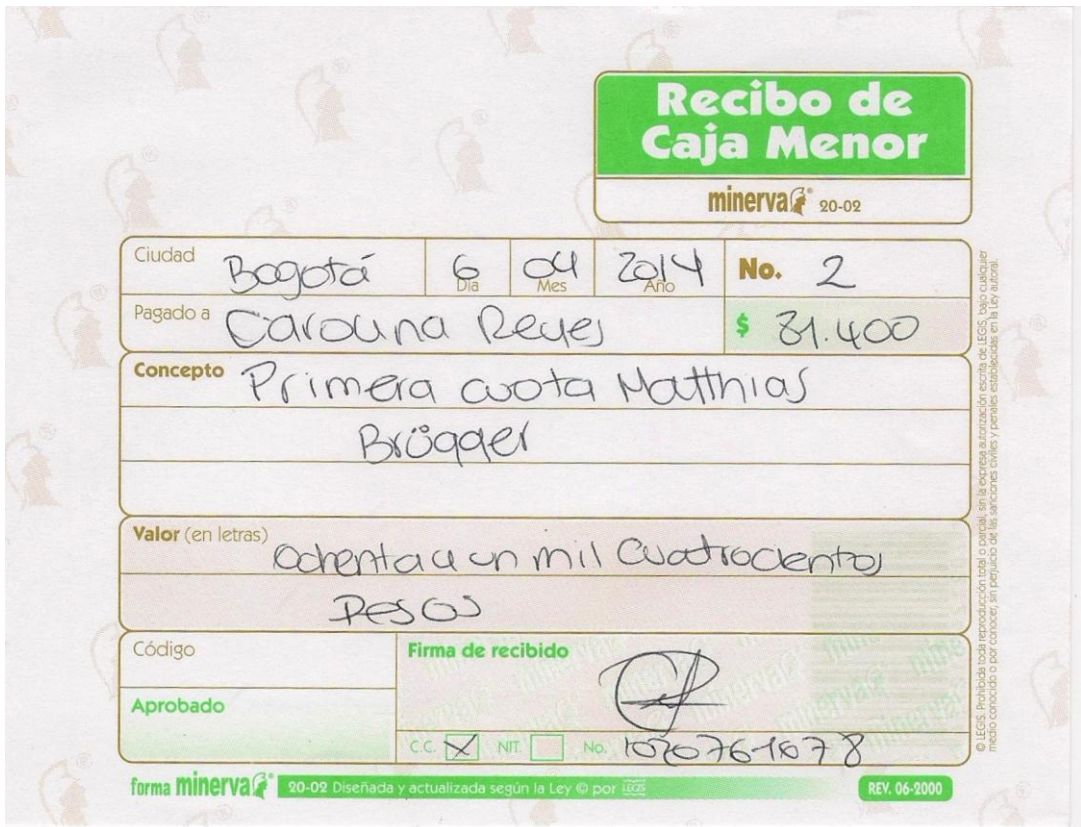 Recibo de
Caja Menor
minerva® 20-02
Ciudad Bogotá 6 Día 04 Mes 2014 Año No. 2
Pagado a Carolina Reyes $ 81.400
Concepto Primera cuota Matthias
Brügger
Valor (en letras) ochenta y un mil cuatrocientos
Pesos
Código
Firma de recibido
Aprobado
C.C. X NIT. No. 1020761078
forma minerva® 20-02 Diseñada y actualizada según la Ley © por LEGIS REV. 06-2000
© LEGIS. Prohibida toda reproducción total o parcial, sin la expresa autorización escrita de LEGIS, bajo cualquier
medio conocido o por conocer, sin perjuicio de las sanciones civiles y penales establecidas en la Ley autoral.